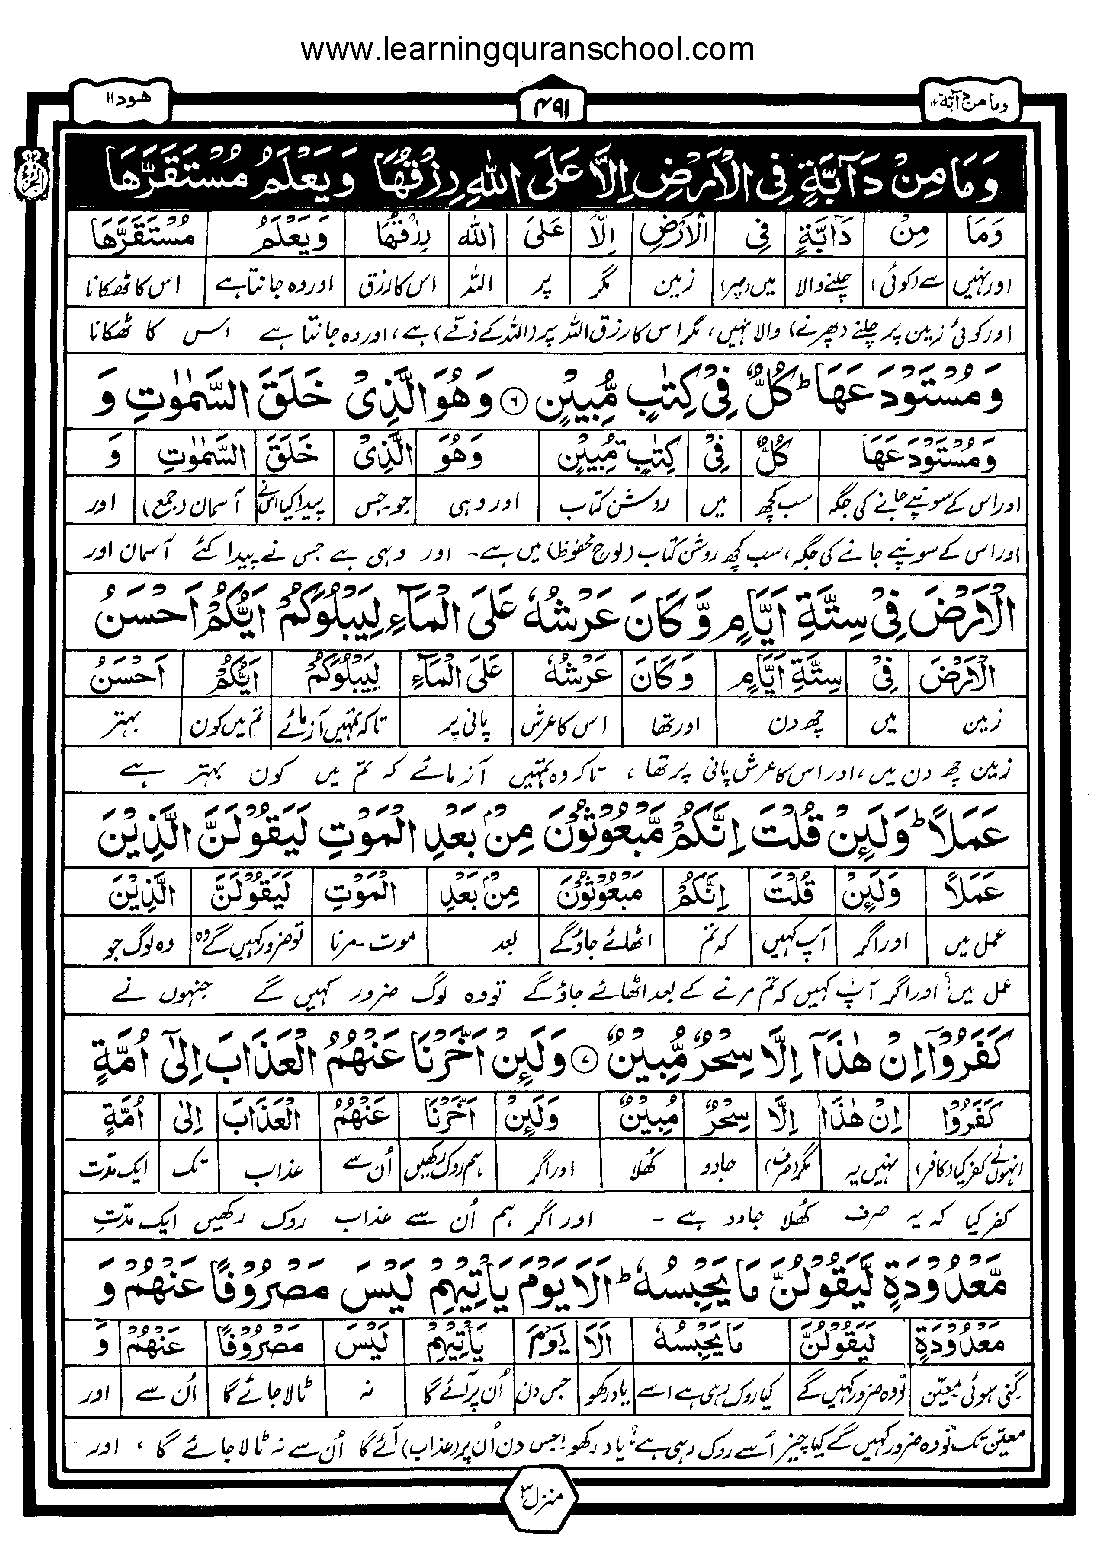 www.learningquranschool.com
وما من دآبة ۱۲
۴۹۱
هود ۱۱
وَمَا مِنْ دَآبَّةٍ فِی الْاَرْضِ اِلَّا عَلَی اللّٰهِ رِزْقُهَا وَیَعْلَمُ مُسْتَقَرَّهَا
وَمَا مِنْ دَآبَّةٍ فِی الْاَرْضِ اِلَّا عَلَی اللّٰهِ رِزْقُهَا وَیَعْلَمُ مُسْتَقَرَّهَا
اور نہیں سے (کوئی) چلنے والا میں (پر) زمین مگر پر اللہ اس کا رزق اور وہ جانتا ہے اس کا ٹھکانا
اور کوئی زمین پر چلنے (پھرنے) والا نہیں، مگر اس کا رزق اللہ پر (اللہ کے ذمے) ہے، اور وہ جانتا ہے اس کا ٹھکانا
وَمُسْتَوْدَعَهَا ؕ كُلٌّ فِیْ كِتٰبٍ مُّبِیْنٍ ۶ وَهُوَ الَّذِیْ خَلَقَ السَّمٰوٰتِ وَ
وَمُسْتَوْدَعَهَا كُلٌّ فِیْ كِتٰبٍ مُّبِیْنٍ وَهُوَ الَّذِیْ خَلَقَ السَّمٰوٰتِ وَ
اور اس کے سونپے جانے کی جگہ سب کچھ میں روشن کتاب اور وہی جو۔ جس پیدا کیا اس نے آسمان (جمع) اور
اور اس کے سونپے جانے کی جگہ، سب کچھ روشن کتاب (لوحِ محفوظ) میں ہے۔ اور وہی ہے جس نے پیدا کئے آسمان اور
الْاَرْضَ فِیْ سِتَّةِ اَیَّامٍ وَّكَانَ عَرْشُهٗ عَلَی الْمَآءِ لِیَبْلُوَكُمْ اَیُّكُمْ اَحْسَنُ
الْاَرْضَ فِیْ سِتَّةِ اَیَّامٍ وَكَانَ عَرْشُهٗ عَلَی الْمَآءِ لِیَبْلُوَكُمْ اَیُّكُمْ اَحْسَنُ
زمین میں چھ دن اور تھا اس کا عرش پانی پر تاکہ تمہیں آزمائے تم میں کون بہتر
زمین چھ دن میں، اور اس کا عرش پانی پر تھا، تاکہ وہ تمہیں آزمائے کہ تم میں کون بہتر ہے
عَمَلًا ؕ وَلَئِنْ قُلْتَ اِنَّكُمْ مَّبْعُوْثُوْنَ مِنْۢ بَعْدِ الْمَوْتِ لَیَقُوْلَنَّ الَّذِیْنَ
عَمَلًا وَلَئِنْ قُلْتَ اِنَّكُمْ مَبْعُوْثُوْنَ مِنْۢ بَعْدِ الْمَوْتِ لَیَقُوْلَنَّ الَّذِیْنَ
عمل میں اور اگر آپ کہیں کہ تم اٹھائے جاؤگے بعد موت۔ مرنا تو ضرور کہیں گے وہ وہ لوگ جو
عمل میں، اور اگر آپ کہیں کہ تم مرنے کے بعد اٹھائے جاؤگے تو وہ لوگ ضرور کہیں گے جنہوں نے
كَفَرُوْۤا اِنْ هٰذَاۤ اِلَّا سِحْرٌ مُّبِیْنٌ ۷ وَلَئِنْ اَخَّرْنَا عَنْهُمُ الْعَذَابَ اِلٰۤی اُمَّةٍ
كَفَرُوْا اِنْ هٰذَا اِلَّا سِحْرٌ مُبِیْنٌ وَلَئِنْ اَخَّرْنَا عَنْهُمُ الْعَذَابَ اِلٰی اُمَّةٍ
انہوں نے کفر کیا (کافر) نہیں یہ مگر (صرف) جادو کھلا اور اگر ہم روک رکھیں اُن سے عذاب تک ایک مدت
کفر کیا کہ یہ صرف کھلا جادو ہے۔ اور اگر ہم اُن سے عذاب روک رکھیں ایک مدتِ
مَّعْدُوْدَةٍ لَّیَقُوْلُنَّ مَا یَحْبِسُهٗ ؕ اَلَا یَوْمَ یَاْتِیْهِمْ لَیْسَ مَصْرُوْفًا عَنْهُمْ وَ
مَعْدُوْدَةٍ لَیَقُوْلُنَّ مَا یَحْبِسُهٗ اَلَا یَوْمَ یَاْتِیْهِمْ لَیْسَ مَصْرُوْفًا عَنْهُمْ وَ
گنی ہوئی معیّن تو وہ ضرور کہیں گے کیا روک رہی ہے اسے یاد رکھو جس دن اُن پر آئے گا نہ ٹالا جائے گا اُن سے اور
معیّن تک تو وہ ضرور کہیں گے کیا چیز اُسے روک رہی ہے؟ یاد رکھو! جس دن اُن پر (عذاب) آئے گا اُن سے نہ ٹالا جائے گا، اور
منزل ۳